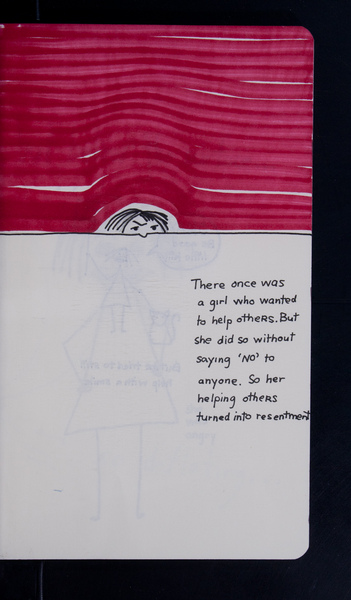 There once was
a girl who wanted
to help others. But
she did so without
saying 'NO' to
anyone. So her
helping others
turned into resentment